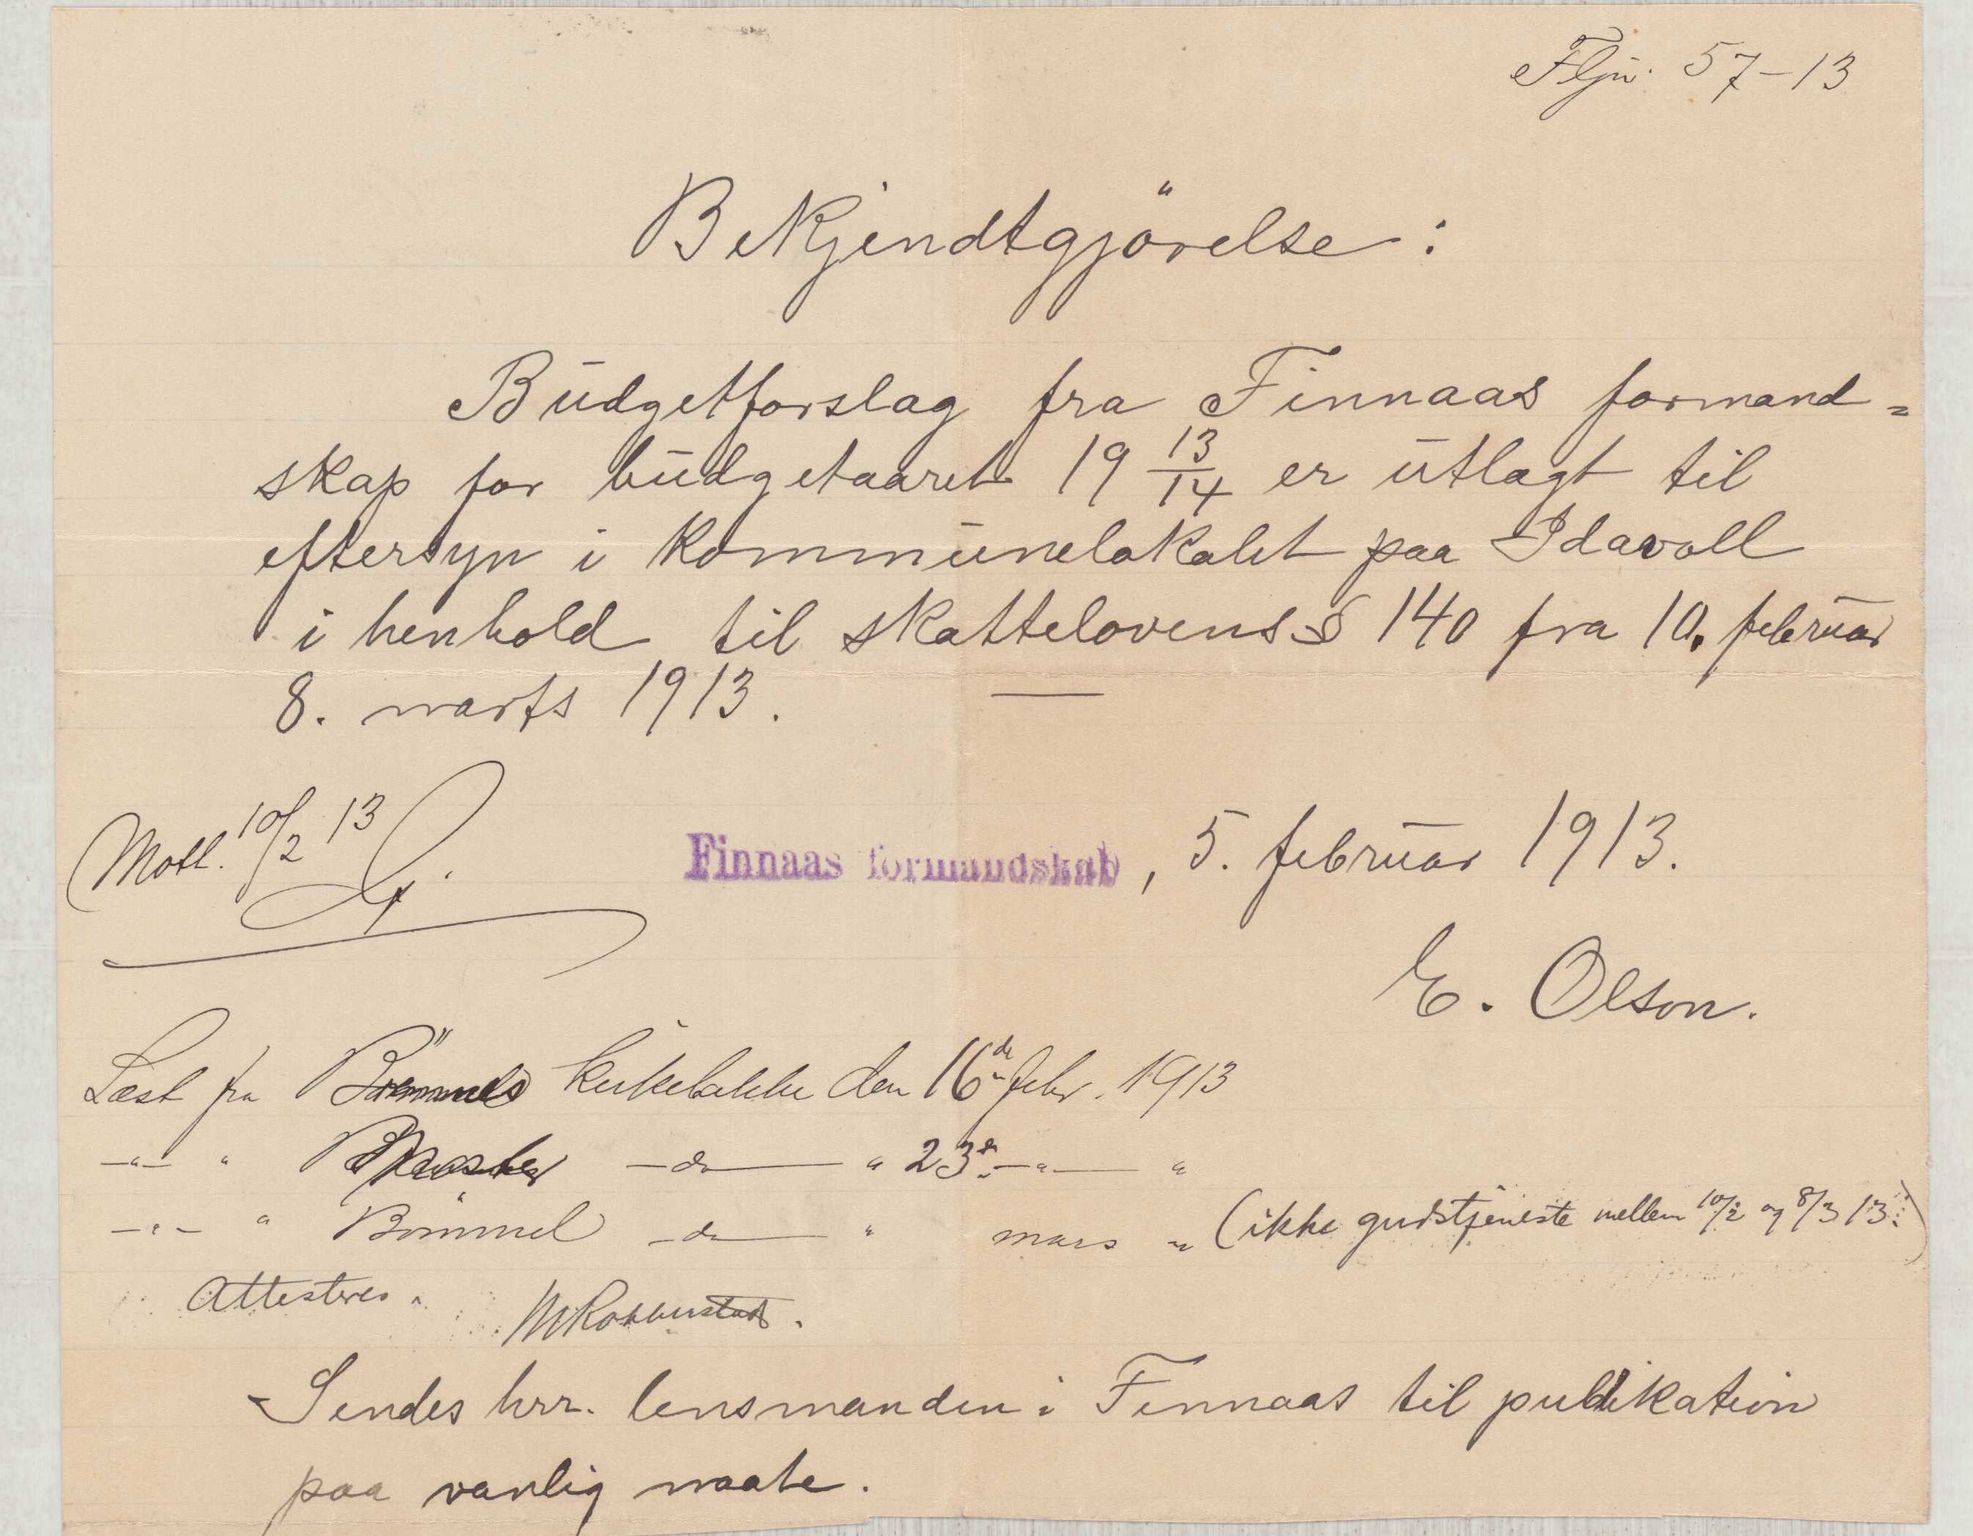 Fljn. 57-13
Bekjendtgjörelse:
Budgetforslag fra Finnaas formand=
skap for budgetaaret 19 13/14 er utlagt til
eftersyn i kommunelokalet paa Idavoll
i henhold til skattelovens § 140 fra 10. februar
8. marts 1913. —
Motl. 10/2 13
Finnaas formandskab, 5. februar 1913.
E. Olson.
Læst fra kirkebakke den 16de febr. 1913
—"— " Moster —do— " 23de —"— "
—"— " Bömmel —do— " mars " (ikke gudstjeneste mellem 10/2 og 8/3 13.)
Attesteres.
Sendes hrr. lensmanden i Finnaas til publikation
paa vanlig maate.